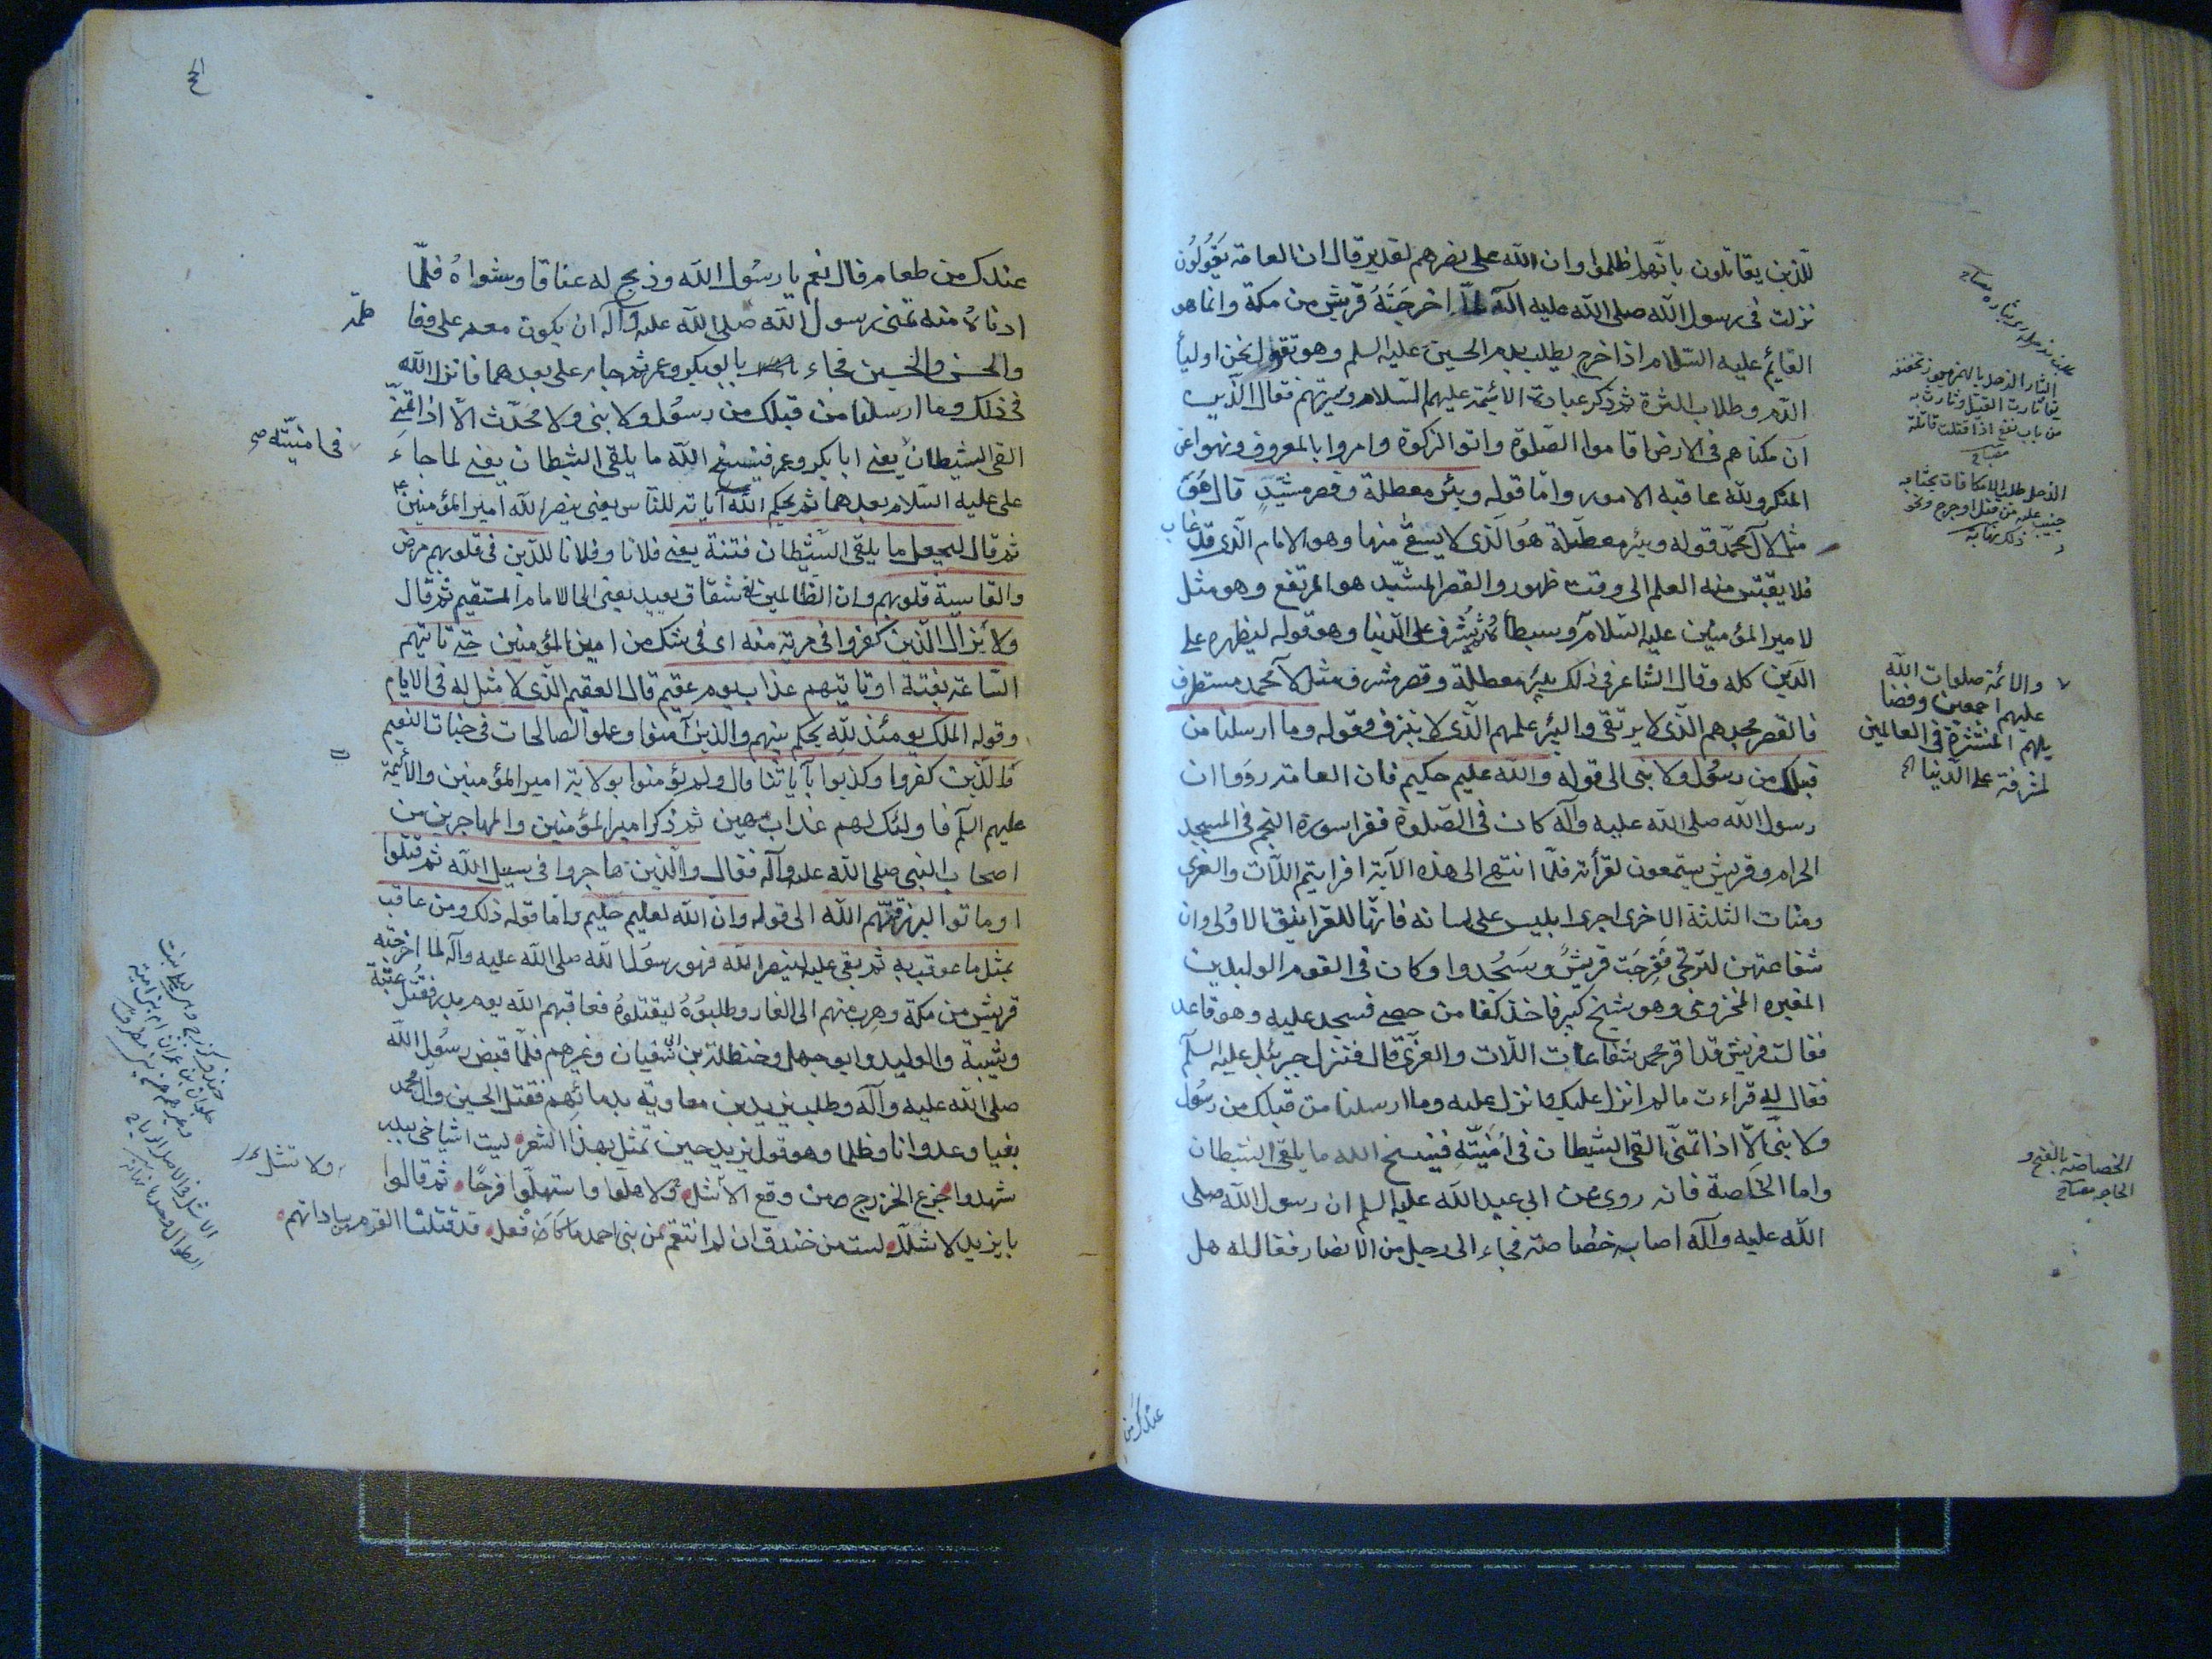 للذين يقاتلون بانهم ظلموا وان الله على نصرهم لقدير قال ان العامة يقولون
نزلت فى رسول الله صلى الله عليه آله لما اخرجته قريش من مكة وانما هو
القايم عليه السلام اذا خرج يطلب بدم الحسين عليه السلم وهو يقول نحن اوليأ
الدم وطلاب الترة ثم ذكر عبادة الايمة عليهم السلام وسيرتهم فقال الذين
ان مكناهم فى الارض اقاموا الصلوة واتو الزكوة وامروا بالمعروف ونهوا عن
المنكر ولله عاقبة الامور واما قوله وبئر معطلة وقصر مشيد قال هو
مثل لآل محمد قوله وبئر معطلة هو الذى لا يستقى منها وهو الامام الذى قد غاب
فلا يقتبس منه العلم الى وقت ظهور والقصر المشيد هو المرتفع وهو مثل
لامير المؤمنين عليه السلام وسبطا ثم يشرف على الدنيا وهو قوله ليظهره على
الدين كله وقال الشاعر فى ذلك بئر معطلة وقصر مشرف مثل لآ محمد مستطرف
فالقصر مجدهم الذى لا يرتقى والبئر علمهم الذى لا ينزف وقوله وما ارسلنا من
قبلك من رسول ولا نبى الى قوله والله عليم حكيم فان العامة رووا ان
رسول الله صلى الله عليه وآله كان فى الصلوة فقرا سورة النجم فى المسجد
الحرام وقريش يستمعون لقرأته فلما انتهى الى هذه الآية افرايتم اللات والعزى
ومنات الثلثة الاخرى اجرى ابليس على لسانه فانها للغرانيق الاولى وان
شفاعتهن لترتجى ففرحت قريش وسجدوا وكان فى القوم الوليد بن
المغيره المخزومى وهو شيخ كبير فاخذ كفا من حصى فسجد عليه وهو قاعد
فقالت قريش قد اقر محمد بشفاعات اللات والعزى قال فنزل جبرئيل عليه السلم
فقال له قراءت ما لم انزل عليك وانزل عليه وما ارسلنا من قبلك من رسول
ولا نبى الا اذا تمنى القى الشيطان فى امنيته فينسخ الله ما يلقى الشيطان
واما الخاصة فانه روى عن ابى عبد الله عليه السلم ان رسول الله صلى
الله عليه وآله اصابه خصاصة فجاء الى رجل من الانصار فقال له هل
والائمة صلوات الله
عليهم اجمعين وفضا
يلهم المنتشرة فى العالمين
المشرفة على الدنيا
الخصاصة بالفتح و
الحاجة
عندك من
عندك من طعام فقال نعم يا رسول الله وذبح له عناقا وشواه فلما
ادناه منه تمنى رسول الله صلى الله عليه وآله ان يكون معه على وفا
طمة
والحسن والحسين فجاء ابو بكر وعمر ثم جاء على بعدهما فانزل الله
فى ذلك وما ارسلنا من قبلك من رسول ولا نبى ولا محدث الا اذا تمنى
القى الشيطان يعنى ابا بكر وعمر فينسخ الله ما يلقى الشيطان يعنى لما جاء
فى امنيته
على عليه السلام بعدهما ثم يحكم الله آياته للناس يعنى ينصر الله امير المؤمنين
ثم قال ليجعل ما يلقى الشيطان فتنة يعنى فلانا وفلانا للذين فى قلوبهم مرض
والقاسية قلوبهم وان الظالمين لفى شقاق بعيد يعنى الى الامام المستقيم ثم قال
ولا يزال الذين كفروا فى مرية منه اى فى شك من امير المؤمنين حتى تاتيهم
الساعة بغتة او تاتيهم عذاب يوم عقيم قال العقيم الذى لا مثل له فى الايام
وقوله الملك يومئذ لله يحكم بينهم والذين آمنوا وعملوا الصالحات فى جنات النعيم
فالذين كفروا وكذبوا بآياتنا قال ولم يؤمنوا بولاية امير المؤمنين والأئمة
عليهم السلم فاولئك لهم عذاب مهين ثم ذكر امير المؤمنين والمهاجرين من
اصحاب النبى صلى الله عليه وآله فقال والذين هاجروا فى سبيل الله ثم قتلوا
او ماتوا ليرزقنهم الله الى قوله وان الله لعليم حليم واما قوله ذلك ومن عاقب
بمثل ما عوقب به ثم بغى عليه لينصر الله فهو رسول الله صلى الله عليه وآله لما اخرجته
قريش من مكة وهرب منهم الى الغار وطلبوه ليقتلوه فعاقبهم الله يوم بدر فقتل عتبة
وشيبة والوليد وابو جهل وحنظلة بن ابى سفيان وغيرهم فلما قبض رسول الله
صلى الله عليه وآله وطلب يزيد بن معاوية بدمائهم فقتل الحسين وآل محمد
بغيا وعدوانا وظلما وهو قول يزيد حين تمثل بهذا الشعر ليت اشياخى ببدر
شهدوا جزع الخزرج من وقع الاسل ولاهلوا واستهلوا فرحا ثم قالوا
يا يزيد لا تشل لست من خندف ان لم انتقم من بنى احمد ما كان فعل قد قتلنا القرم من ساداتهم